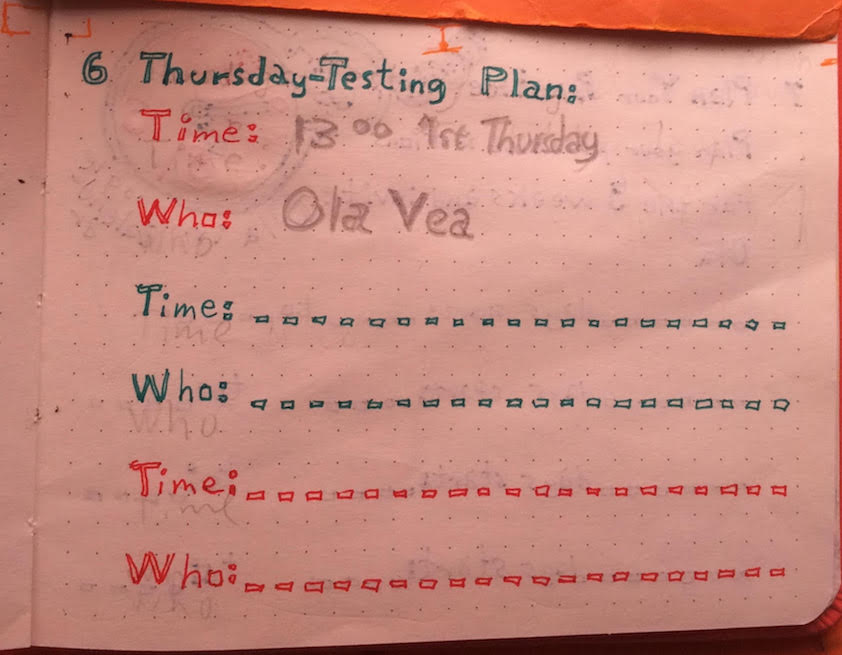 6 Thursday-Testing Plan:
Time: 13 00 1st Thursday
Who: Ola Vea
Time:
Who:
Time:
Who: